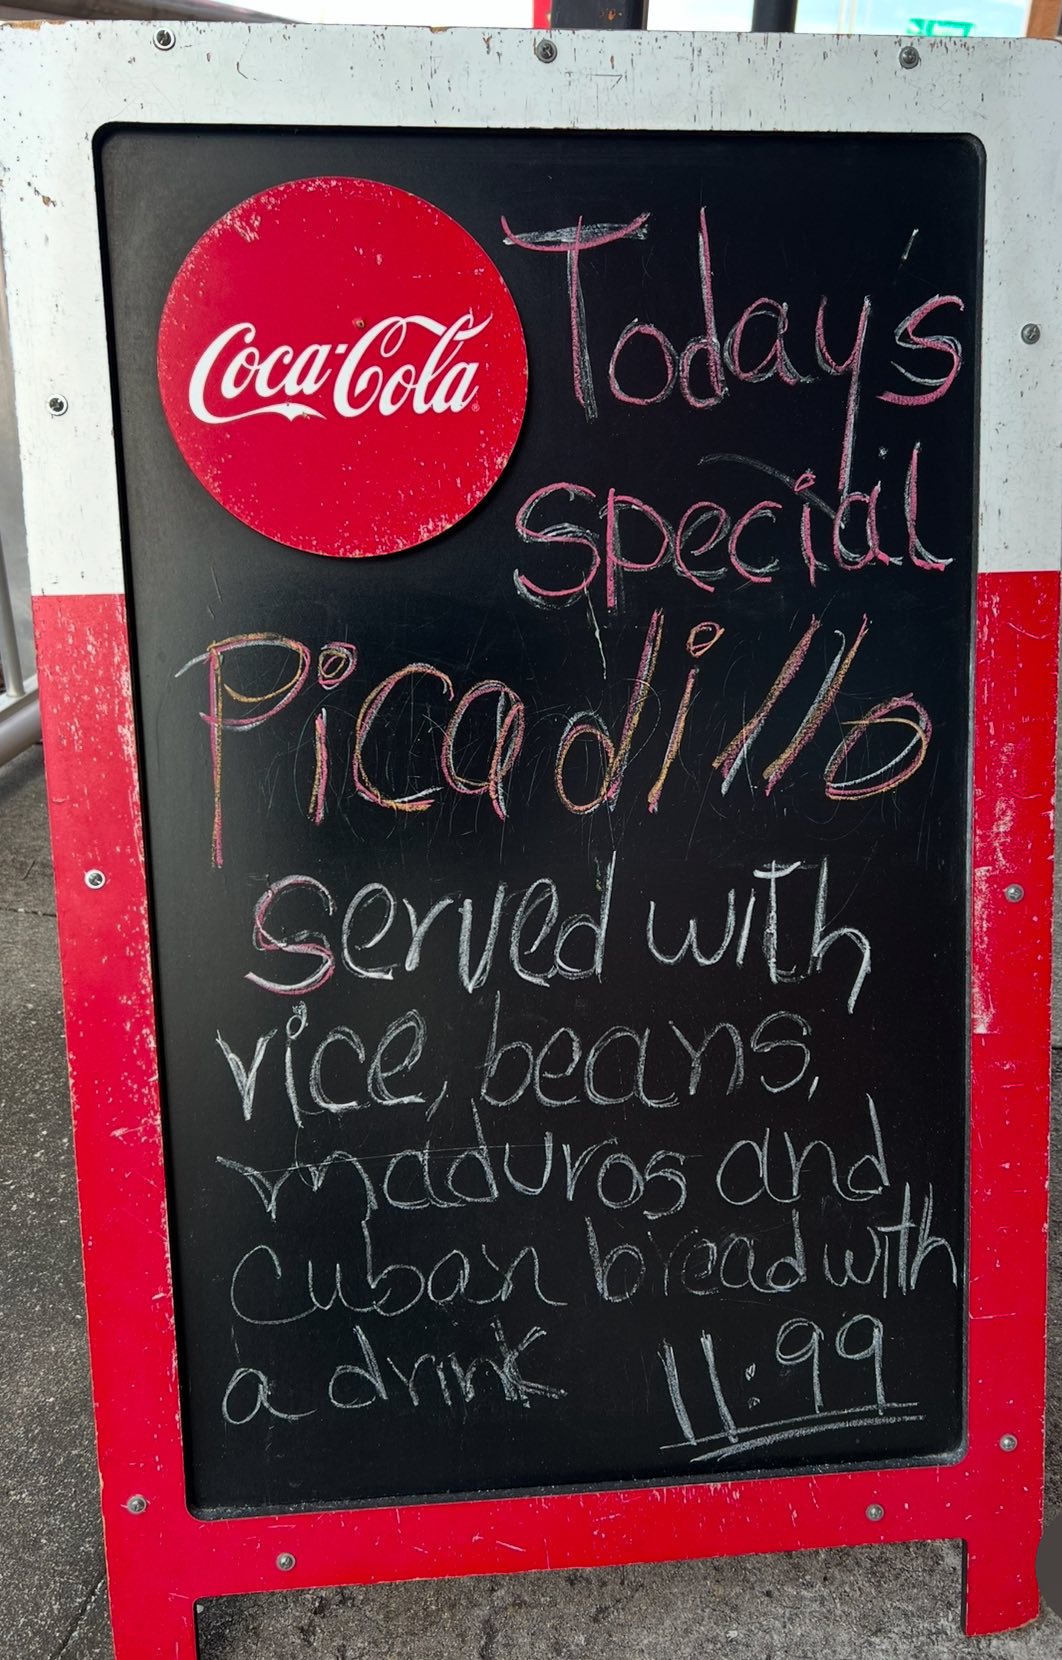 Coca-Cola
Today's
Special
Picadillo
Served with
rice, beans,
maduros and
cuban bread with
a drink 11:99